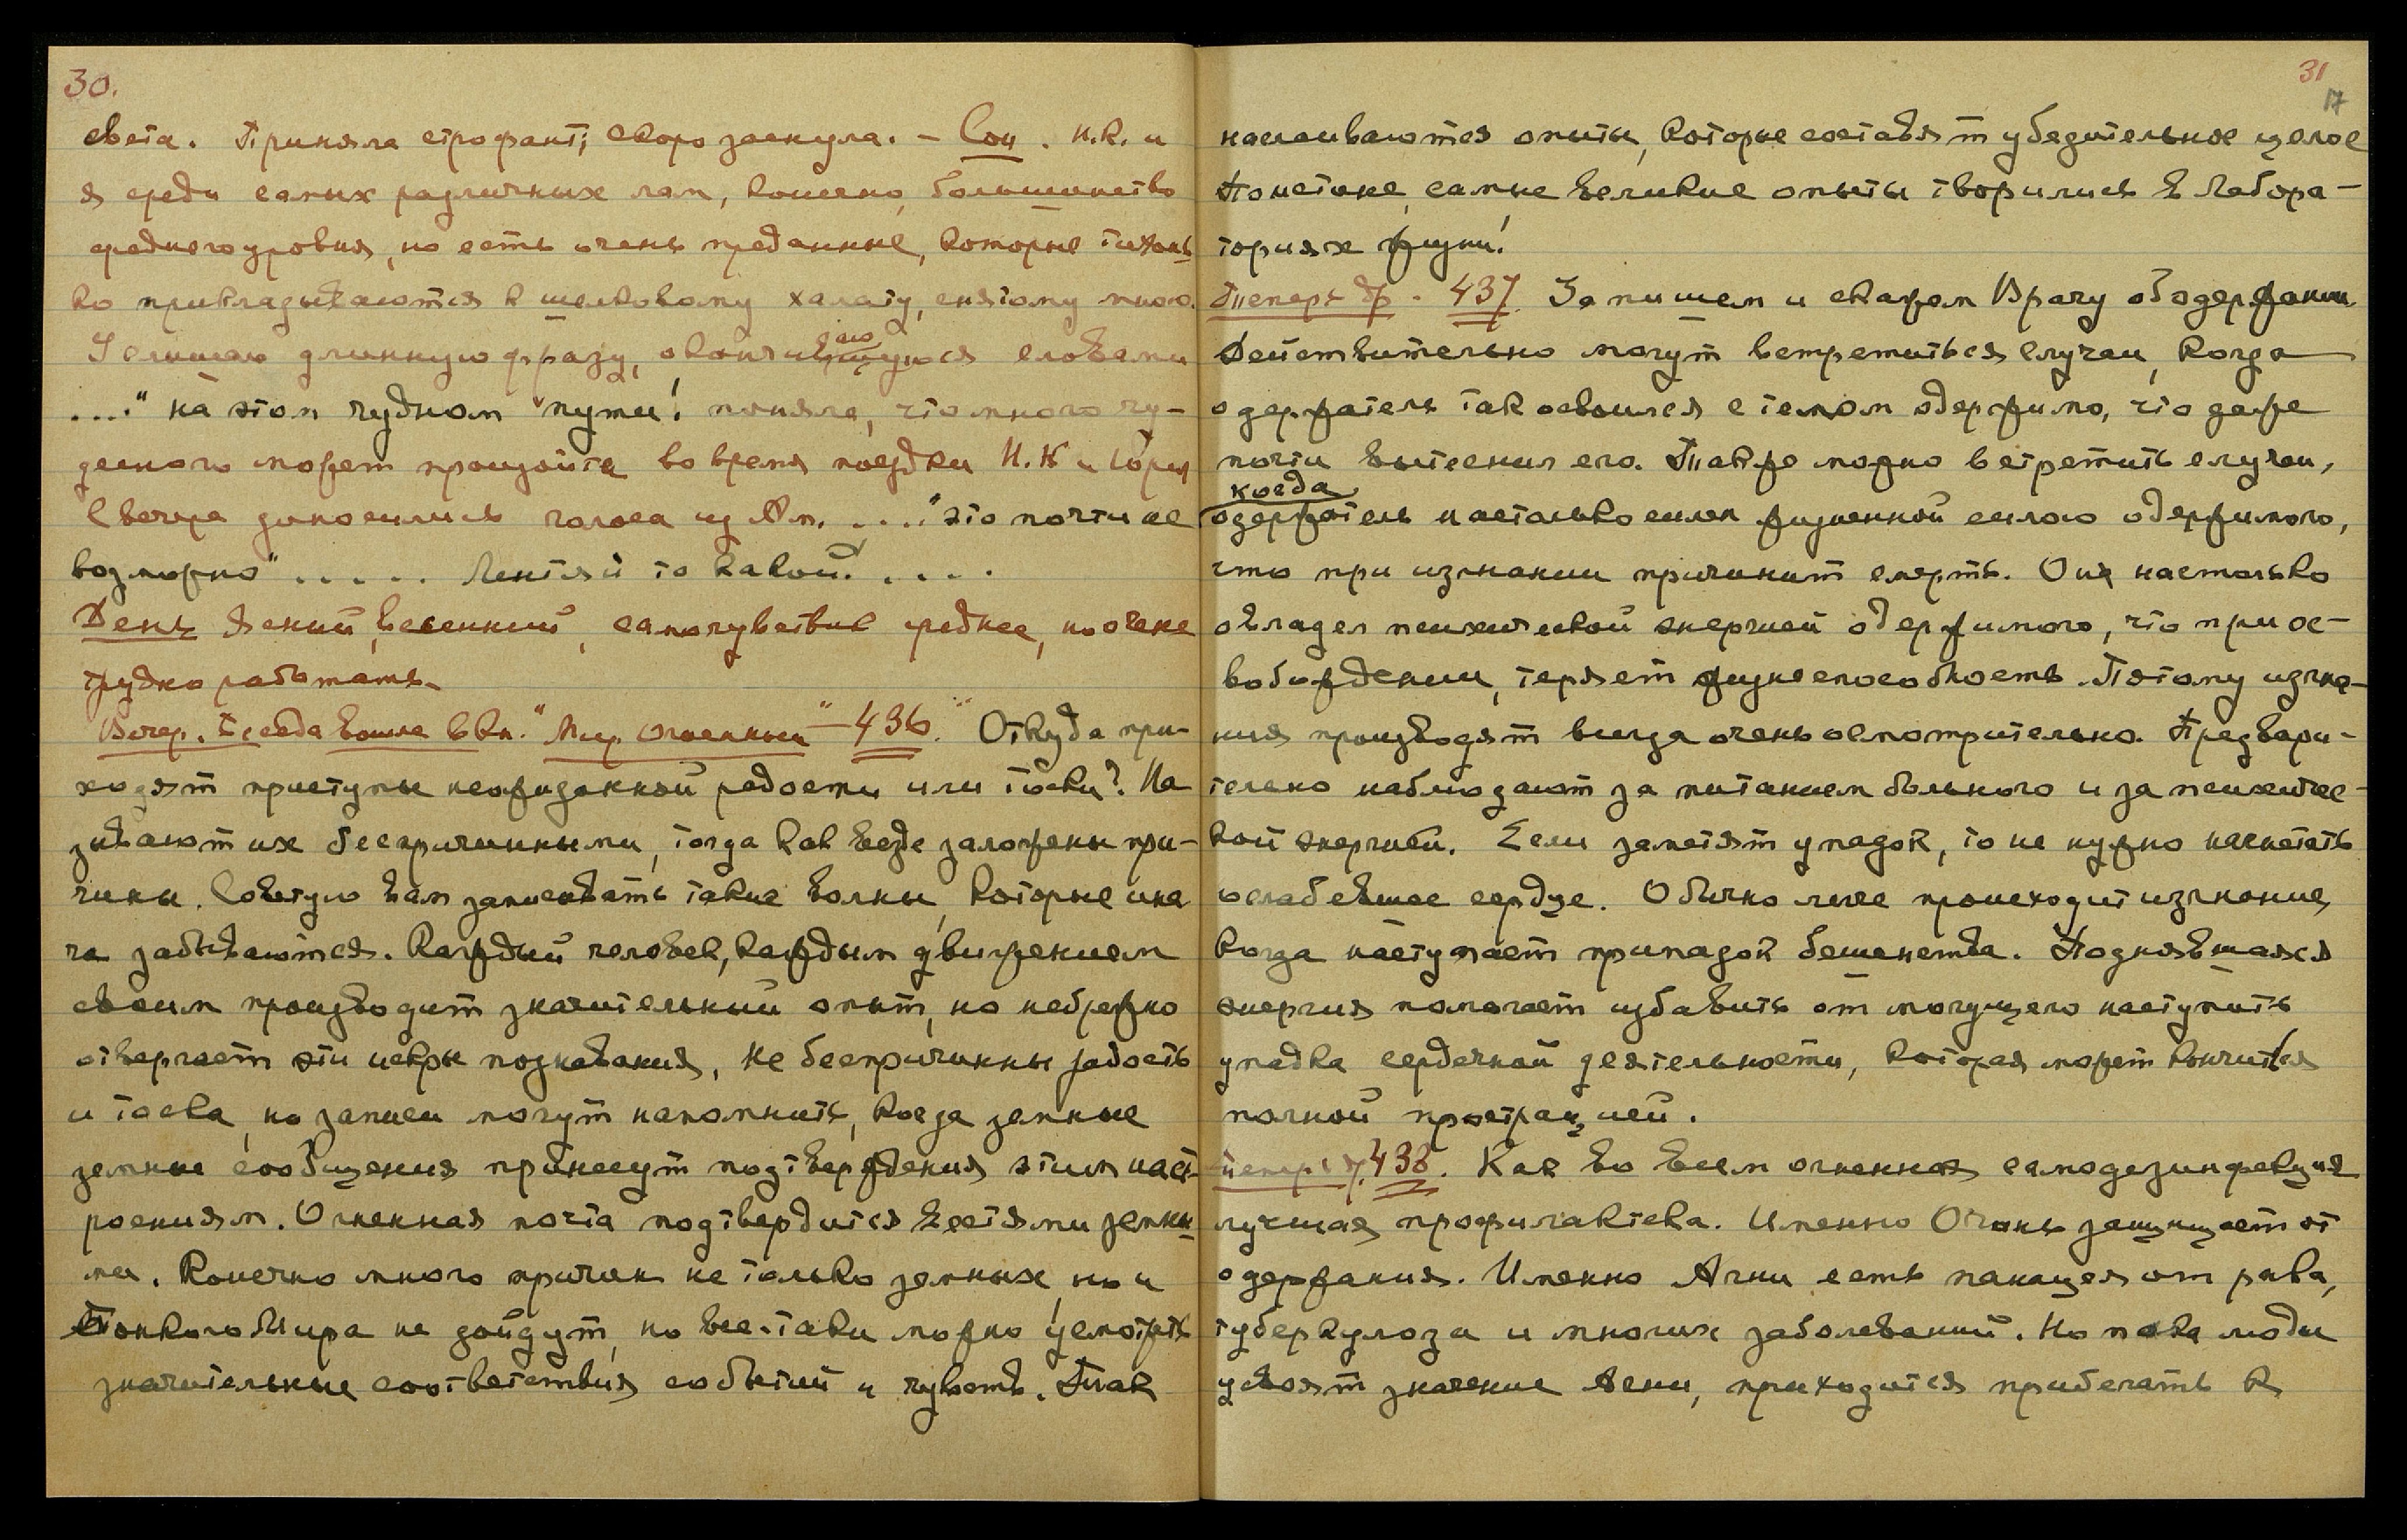 30.
света. Приняла строфант; скоро заснула. – Сон. Н.К. и
я среди самых различных лам, конечно, большинство
среднего уровня, но есть очень преданные, которые тихонь
ко прикладываются к шелковому халату, снятому мною.
Услышаю длинную фразу, окончив шуюся словами
...." на этом чудном пути! поняла, что много чу-
десного может произойти во время поездки Н.К и Юрия
С вечера доносились голоса из Ам. ...." это почти не
возможно" ..... Лентяй то какой! ....
День ясный, весенний, самочувствие среднее, но очень
трудно работать.
Вечер. Беседа вошла в кн. "Мир Огненный" – 436. " Откуда при-
ходят приступы неожиданной радости или тоски? На
зывают их беспричинными, тогда как везде заложены при-
чины. Советую вам записывать такие волны, которые ина
че забываются. Каждый человек, каждым движением
своим производит значительный опыт, но небрежно
отвергает эти искры познавания, не беспричинны радость
и тоска, но записи могут напомнить, когда земные
земные сообщения принесут подтверждения этим наст-
роениям. Огненная почта подтвердится вестями земны
ми. Конечно много причин не только земных, но и
Тонкого Мира не дойдут, но все-таки можно усмотреть
значительные соответствия событий и чувств. Так
31
17
наслаиваются опыты, которые составят убедительное целое
Поистине, самые великие опыты творились в лабора-
ториях жизни!
Теперь др. 437. Запишем и скажем Врачу об одержании
Действительно могут встретиться случаи, когда
одержатель так освоился с телом одержимо, что даже
почти вытеснил его. Также можно встретить случаи,
когда
одержатель настолько силен жизненной силою одержимого,
что при изгнании причинит смерть. Он настолько
овладел психической энергией одержимого, что при ос-
вобождении, теряет жизнеспособность. Потому изгна-
ния производят всегда очень осмотрительно. Предвари-
тельно наблюдают за питанием больного и за психичес-
кой энергией. Если заметят упадок, то не нужно насиловать
ослабевшее сердце. Обычно легче происходит изгнание,
когда наступает припадок бешенства. Поднявшаяся
энергия помогает избавить от могущего наступить
упадка сердечной деятельности, которая может кончиться
полной прострацией.
Теперь др. 438. Как во всем огненная самодезинфекция
лучшая профилактика. Именно Огонь защищает от
одержания. Именно Агни есть панацея от рака,
туберкулоза и многих заболеваний. Но пока люди
усвоят значение Агни, приходится прибегать к